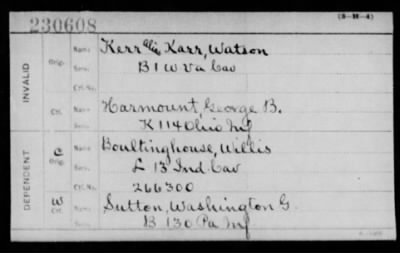 230608
(3-M-4)
INVALID
Orig.
Name Kerr alias Karr, Watson
Serv. B 1 W Va Cav
Ctf. No.
Ctf.
Name Harmount, George B.
Serv. K 114 Ohio Inf
DEPENDENT
C
Orig.
Name Boultinghouse, Willis
Serv. L 13 Ind Cav
Ctf. No. 266300
W
Ctf.
Name Sutton, Washington G.
Serv. B 130 Pa Inf